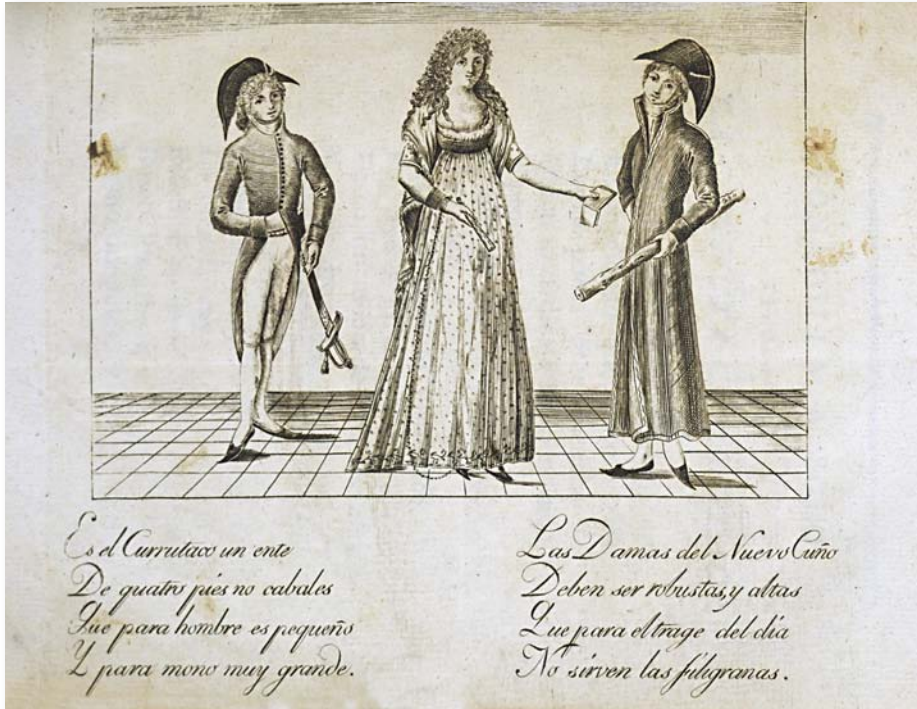 Es el Currutaco un ente
De quatro pies no cabales
Que para hombre es pequeño
Y para mono muy grande.
Las Damas del Nuevo Cuño
Deben ser robustas, y altas
Que para el trage del día
No sirven las filigranas.